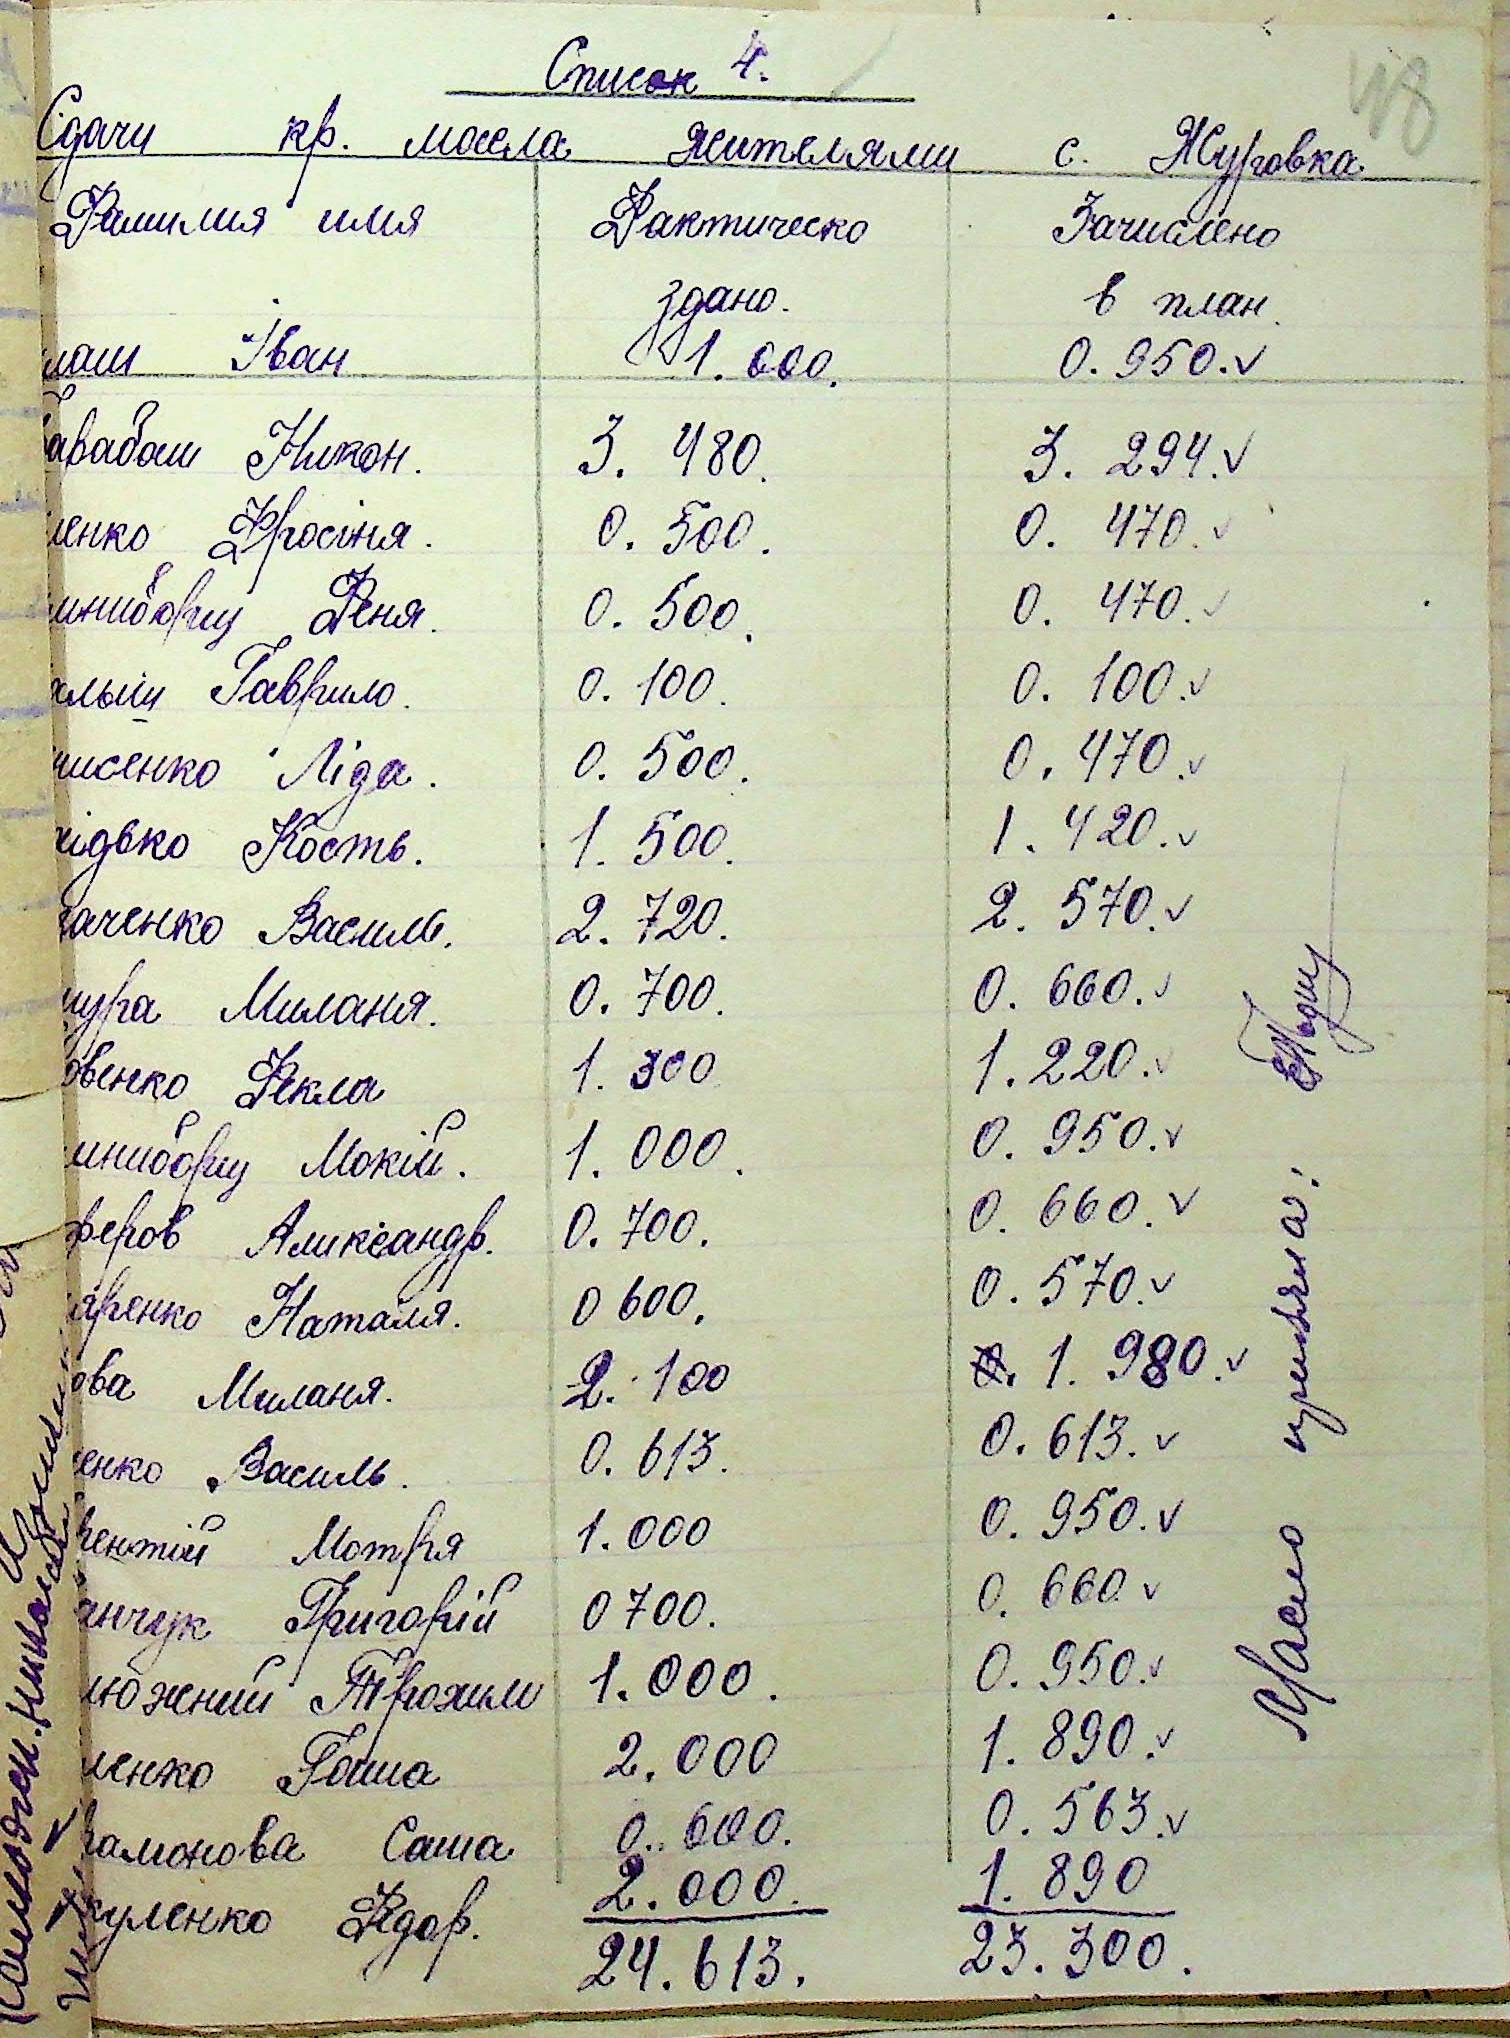 Список 4.
48
Сдачи кр. масла жителями с. Журовка.
Фамилия имя Фактическо Зачислено
здано. в план.
лаш Іван 1.000. 0.950.✓
арабаш Никон. 3.480. 3.294.✓
ленко Фросіня. 0.500. 0.470.✓
иниборщ Феня. 0.500. 0.470.✓
алыш Гаврило. 0.100. 0.100.✓
нисенко Ліда. 0.500. 0.470.✓
хідько Кость. 1.500. 1.420.✓
каченко Василь. 2.720. 2.570.✓
цура Миланя. 0.700. 0.660.✓
овенко Фекла 1.300 1.220.✓
иниборщ Мокій. 1.000. 0.950.✓
феров Александр. 0.700. 0.660.✓
аренко Наталя. 0 600. 0.570.✓
ова Миланя. 2.100 0. 1.980.✓
енко Василь. 0.613. 0.613.✓
рентій Мотря 1.000 0.950.✓
анчук Григорій 0 700. 0.660 ✓
люжений Трохим 1.000. 0.950.✓
ленко Гаша 2.000 1.890.✓
рамонова Саша 0.600. 0.563.✓
куленко Фдор. 2.000. 1.890
24.613. 23.300.
Масло приняла: